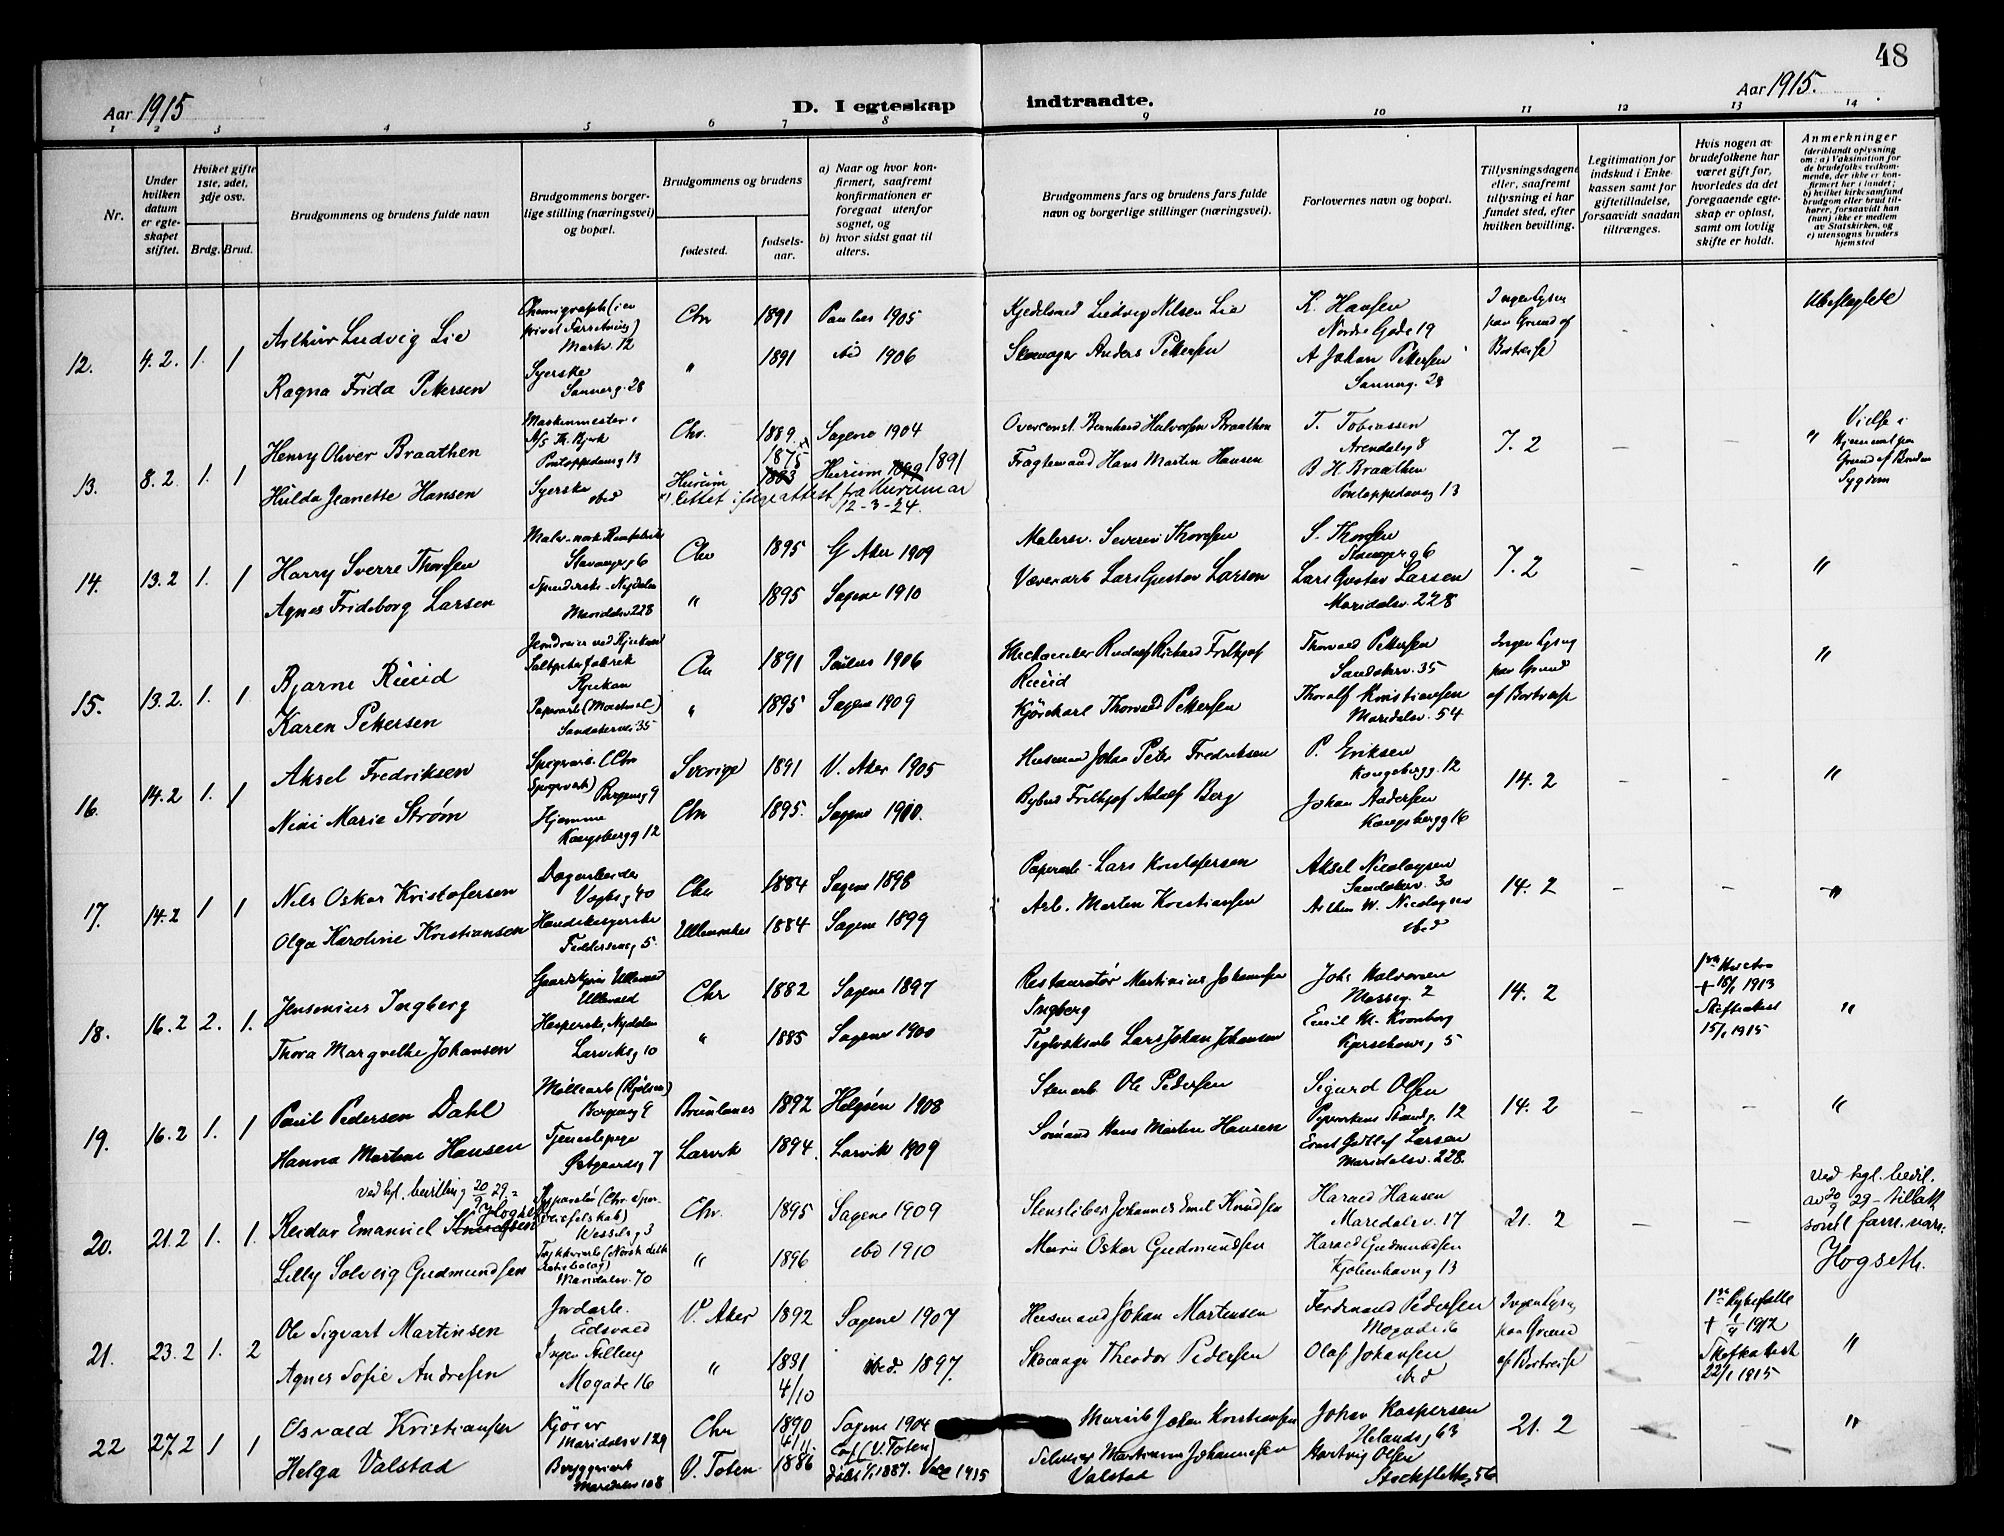 48
Aar 1915
D. I egteskap indtraadte.
Aar 1915.
1 2 3 4 5 6 7 8 9 10 11 12 13 14
Nr.
Under hvilken datum er egteskapet stiftet.
Hviket gifte 1ste, 2det, 3dje osv.
Brdg. Brud.
Brudgommens og brudens fulde navn
Brudgommens borgerlige stilling (næringsvei) og bopæl.
Brudgommens og brudens
fødested.
fødselsaar.
a) Naar og hvor konfirmert, saafremt konfirmationen er foregaat utenfor sognet, og
b) hvor sidst gaat til alters.
Brudgommens fars og brudens fars fulde navn og borgerlige stillinger (næringsvei).
Forlovernes navn og bopæl.
Tillysningsdagene eller, saafremt tillysning ei har fundet sted, efter hvilken bevilling.
Legitimation for indskud i Enkekassen samt for giftetilladelse, forsaavidt saadan tiltrænges.
Hvis nogen av brudefolkene har været gift for, hvorledes da det foregaaende egteskap er opløst, samt om lovlig skifte er holdt.
Anmerkninger
(deriblandt oplysning om: a) Vaksination for de brudefolks vedkommende, der ikke er konfirmert her i landet; b) hvilket kirkesamfund brudgom eller brud tilhører, forsaavidt han (hun) ikke er medlem av Statskirken, og c) utensogns bruders hjemsted
12. 4.2. 1. 1
Arthur Ludvig Lie
Markv. 12
Chr 1891 Paulus 1905
Kjedelsmed Ludvig Nilsen Lie
K. Hansen
Nordre Gade 19
Ingen Lysn
paa Grund af
Bortreise
Ubeslegtede
Ragna Frida Pettersen
Syerske
Sannerg. 28
" 1891 ibid 1906
Skomager Anders Pettersen
A Johan Pettersen
Sannerg. 28
13. 8.2. 1. 1
Henry Oliver Braathen
Maskinmester i
Pontoppedansg 13
Chr. 1889 Sagene 1904
Overconst. Bernhard Halvorsen Braathen
T. Tobiassen
Arendalsg 8
7.2
" Vielse i
Hjemmet paa
Grund af Bruden
Sygdom
Hulda Jeanette Hansen
Syerske
ibid
Hurum 1875 1883 Hurum 1899 1891
Fragtemand Hans Martin Hansen
B H. Braathen
Pontoppedansg 13
12-3-24.
14. 13.2 1. 1
Harry Sverre Thorsen
Stavangerg 6
Chr 1895 G Aker 1909
Malersv. Severin Thorsen
S. Thorsen
Stavangerg 6
7.2
"
Agnes Frideborg Larsen
Spinderske. Nydalen
Maridalsv. 228
" 1895 Sagene 1910
Væverarb Lars Gustav Larsen
Lars Gustav Larsen
Maridalsv. 228
15. 13.2. 1. 1
Bjarne Ruud
Saltpeterfabrik
Rjukan
Chr 1891 Paulus 1906
Mechaniker Rudolf Richard Frithjof
Ruud
Thorvald Pettersen
Sandakerv. 35
Ingen Lysng
paa Grund
af Bortreise
"
Karen Pettersen
Sandakervei 35
" 1895 Sagene 1909
Kjørekarl Thorvald Pettersen
Thoralf Kristiansen
Maridalsv. 54
16. 14.2 1. 1
Aksel Fredriksen
Spigerarb. (Chr
Spigerverk) Bergensg 9
Sverige 1891 V. Aker 1905
Husmand Johan Peter Fredriksen
P. Eriksen
Kongsbergg. 12
14.2
"
Nini Marie Strøm
Hjemme
Kongsbergg 12
Chr 1895. Sagene 1910.
Bybud Frithjof Adolf Berg
Johan Andersen
Kongsbergg 16
17. 14.2 1 1
Nils Oskar Kristofersen
Dagarbeider
Vogtsg 40
Chr 1884 Sagene 1898
Papirarb. Lars Kristofersen
Aksel Nicolaysen
Sandakerv. 30
14.2
"
Olga Karoline Kristiansen
Handskesyerske
Feddersensg 5.
Ullensaker 1884 Sagene 1899
Arb. Morten Kristiansen
Arthur W. Nicolaysen
ibid
18. 16.2 2. 1.
Jensenius Ingberg
Ullevaal
Chr 1882 Sagene 1897
Restauratør Martinius Johannesen
Ingberg
Joh. Halvorsen
Mosseg. 2
14.2
1ste Hustru
+ 15/1 1913
Skifteattest
15/1 1915
"
Thora Margrethe Johansen
Hasperske, Nydalen
Larviksg 10
" 1885 Sagene 1900
Teglverksarb Lars Johan Johansen
Emil M. Kronborg
Kjerschowsg 5
19. 16.2 1. 1
Paul Pedersen Dahl
Møllearb (Bjølsen)
Bergensg 9
Brunlanes 1892 Helgøen 1908
Stenarb Ole Pedersen
Sigurd Olsen
Pipervikens Strandg. 12
14.2
"
Hanna Martine Hansen
Tjenestepige
Østgaardsg 7
Larvik 1894. Larvik 1909
Sømand Hans Martin Hansen
Ernst Gottlef Larsen
Maridalsv. 228.
ved kgl. bevilling 20/9 29.=
20. 21.2 1. 1.
Hogseth
Reidar Emanuel Knudsen
Wesselsg 3
Chr. 1895 Sagene 1909
Stensliber Johannes Emil Knudsen
Harald Hansen
Maridalsv. 17
21.2
ved kgl. bevil.
av 20/9 29- tillatt
som fam.navn:
Hogseth.
Lilly Solveig Gudmundsen
Maridalsv. 70
" 1896 ibid 1910
Murer Oskar Gudmundsen
Harald Gudmundsen
Kjøbenhavnsg 13
21. 23.2 1. 2
Ole Sigvart Martinsen
Jordarb.
Eidsvold
V. Aker 1892 Sagene 1907
Husmand Johan Martinsen
Ferdinand Pedersen
Mogade 16
Ingen Lysng
paa Grund
af Bortreise
+ 1/9 1912
Skifteattest
22/1 1915
"
Agnes Sofie Andresen
Ingen Stilling
Mogade 16
" 1881 ibid. 1897
Skomager Theodor Pedersen
Olaf Johansen
ibid
22 27.2 1 1
Osvald Kristiansen
Kjører
Maridalsv 129
Chr 4/10 1890 Sagene 1904
Murarb Johan Kristiansen
Johan Kaspersen
Helandsg 63
21.2
"
Helga Valstad
Bryggeriarb
Maridalsv 108
V. Toten 4/11. 1886
(V. Toten)
Martinius Johannesen
Valstad
Hartvig Olsen
Stockfletsg 56